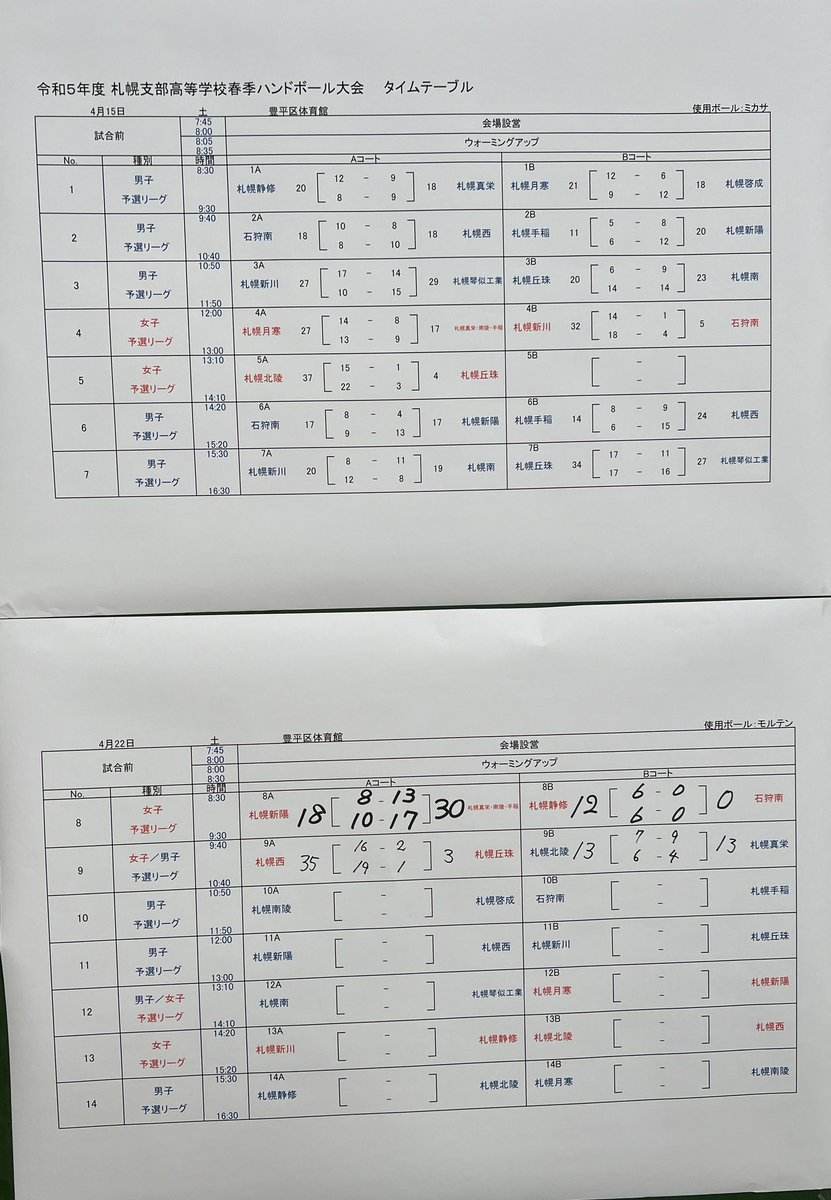 令和5年度 札幌支部高等学校春季ハンドボール大会 タイムテーブル
4月15日 土 豊平区体育館 使用ボール:ミカサ
試合前 7:45 8:00 会場設営
8:05 8:35 ウォーミングアップ
No. 種別 時間 Aコート Bコート
1 男子 予選リーグ 8:30 9:30 1A 札幌静修 20 [ 12 - 9 8 - 9 ] 18 札幌真栄 1B 札幌月寒 21 [ 12 - 6 9 - 12 ] 18 札幌啓成
2 男子 予選リーグ 9:40 10:40 2A 石狩南 18 [ 10 - 8 8 - 10 ] 18 札幌西 2B 札幌手稲 11 [ 5 - 8 6 - 12 ] 20 札幌新陽
3 男子 予選リーグ 10:50 11:50 3A 札幌新川 27 [ 17 - 14 10 - 15 ] 29 札幌琴似工業 3B 札幌丘珠 20 [ 6 - 9 14 - 14 ] 23 札幌南
4 女子 予選リーグ 12:00 13:00 4A 札幌月寒 27 [ 14 - 8 13 - 9 ] 17 札幌真栄・南陵・手稲 4B 札幌新川 32 [ 14 - 1 18 - 4 ] 5 石狩南
5 女子 予選リーグ 13:10 14:10 5A 札幌北陵 37 [ 15 - 1 22 - 3 ] 4 札幌丘珠 5B [ - - ]
6 男子 予選リーグ 14:20 15:20 6A 石狩南 17 [ 8 - 4 9 - 13 ] 17 札幌新陽 6B 札幌手稲 14 [ 8 - 9 6 - 15 ] 24 札幌西
7 男子 予選リーグ 15:30 16:30 7A 札幌新川 20 [ 8 - 11 12 - 8 ] 19 札幌南 7B 札幌丘珠 34 [ 17 - 11 17 - 16 ] 27 札幌琴似工業
4月22日 土 豊平区体育館 使用ボール:モルテン
試合前 7:45 8:00 会場設営
8:00 8:30 ウォーミングアップ
No. 種別 時間 Aコート Bコート
8 女子 予選リーグ 8:30 9:30 8A 札幌新陽 18 [ 8 - 13 10 - 17 ] 30 札幌真栄・南陵・手稲 8B 札幌静修 12 [ 6 - 0 6 - 0 ] 0 石狩南
9 女子/男子 予選リーグ 9:40 10:40 9A 札幌西 35 [ 16 - 2 19 - 1 ] 3 札幌丘珠 9B 札幌北陵 13 [ 7 - 9 6 - 4 ] 13 札幌真栄
10 男子 予選リーグ 10:50 11:50 10A 札幌南陵 [ - - ] 札幌啓成 10B 石狩南 [ - - ] 札幌手稲
11 男子 予選リーグ 12:00 13:00 11A 札幌新陽 [ - - ] 札幌西 11B 札幌新川 [ - - ] 札幌丘珠
12 男子/女子 予選リーグ 13:10 14:10 12A 札幌南 [ - - ] 札幌琴似工業 12B 札幌月寒 [ - - ] 札幌新陽
13 女子 予選リーグ 14:20 15:20 13A 札幌新川 [ - - ] 札幌静修 13B 札幌北陵 [ - - ] 札幌西
14 男子 予選リーグ 15:30 16:30 14A 札幌静修 [ - - ] 札幌北陵 14B 札幌月寒 [ - - ] 札幌南陵